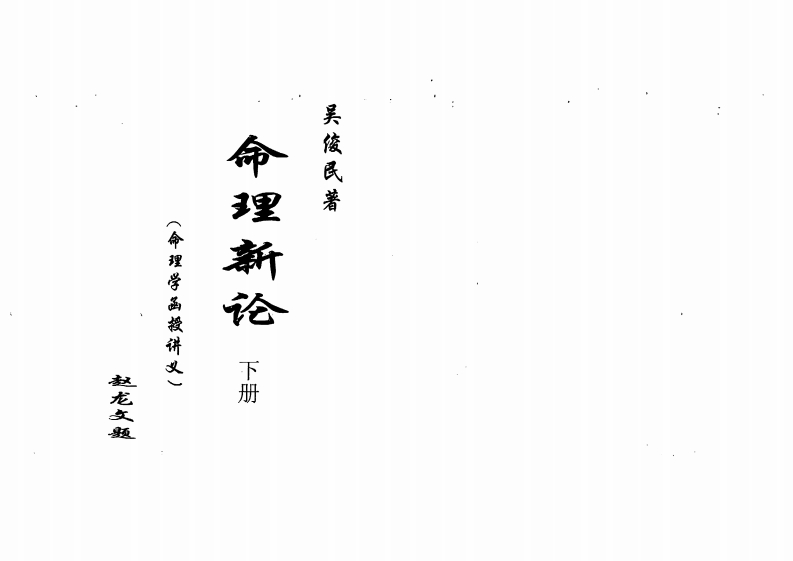 吴俊民著
命理新论 下册
（命理学函授讲义）
赵龙文题